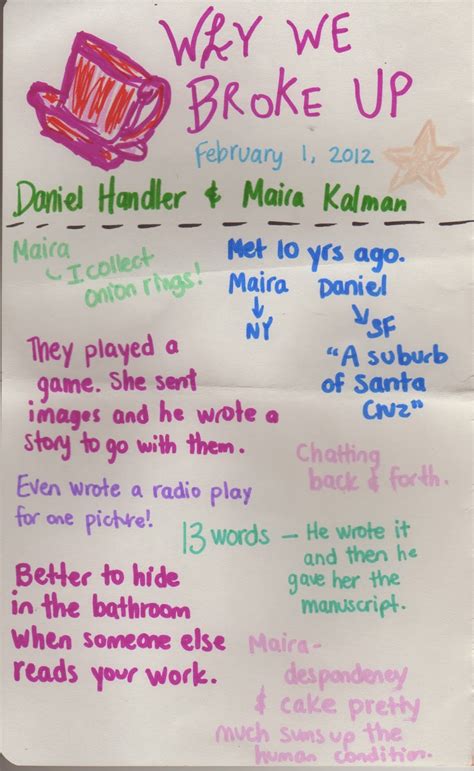 WHY WE
BROKE UP
February 1, 2012
Daniel Handler & Maira Kalman
Maira
I collect
onion rings!
Met 10 yrs ago.
Maira Daniel
NY
SF
"A suburb
of Santa
Cruz"
They played a
game. She sent
images and he wrote a
story to go with them.
Chatting
back & forth.
Even wrote a radio play
for one picture!
13 words — He wrote it
and then he
gave her the
manuscript.
Better to hide
in the bathroom
when someone else
reads your work.
Maira-
despondency
& cake pretty
much sums up the
human condition.